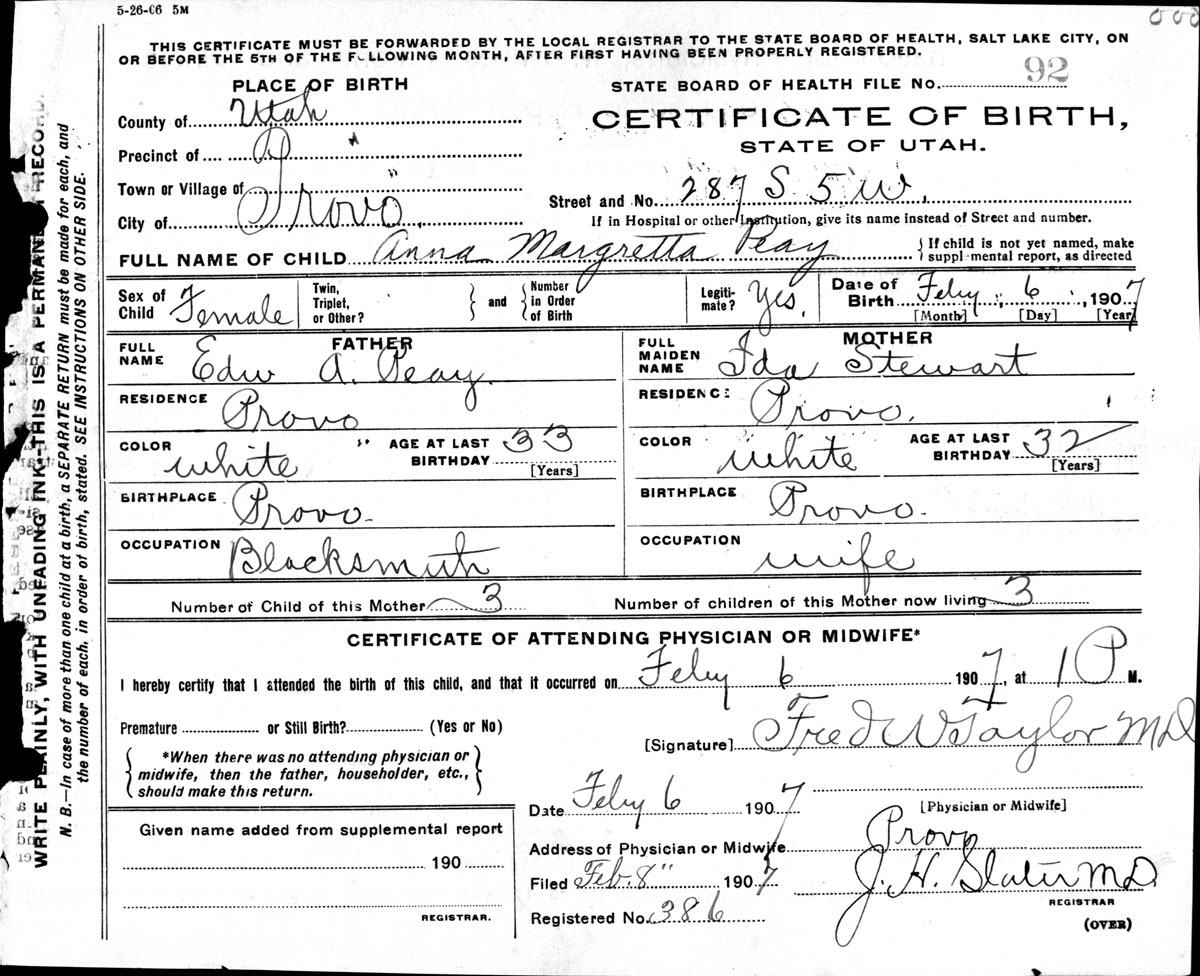 5-26-06 5M
THIS CERTIFICATE MUST BE FORWARDED BY THE LOCAL REGISTRAR TO THE STATE BOARD OF HEALTH, SALT LAKE CITY, ON
OR BEFORE THE 5TH OF THE FOLLOWING MONTH, AFTER FIRST HAVING BEEN PROPERLY REGISTERED.
PLACE OF BIRTH
STATE BOARD OF HEALTH FILE NO. 92
County of Utah
CERTIFICATE OF BIRTH,
STATE OF UTAH.
Precinct of
Town or Village of "
City of Provo
Street and No. 287 S 5 W,
If in Hospital or other Institution, give its name instead of Street and number.
FULL NAME OF CHILD Anna Margretta Peay
{ If child is not yet named, make
supplmental report, as directed
Sex of Child Female
Twin, Triplet, or Other? } and { Number in Order of Birth
Legiti-mate? Yes.
Date of Birth Feby, 6, 1907
[Month] [Day] [Year]
FATHER
FULL NAME Edw A. Peay.
RESIDENCE Provo
COLOR white AGE AT LAST BIRTHDAY 33
[Years]
BIRTHPLACE Provo.
OCCUPATION Blacksmith
MOTHER
FULL MAIDEN NAME Ida Stewart
RESIDENCE Provo.
COLOR white AGE AT LAST BIRTHDAY 32
[Years]
BIRTHPLACE Provo.
OCCUPATION wife
Number of Child of this Mother 3 Number of children of this Mother now living 3
CERTIFICATE OF ATTENDING PHYSICIAN OR MIDWIFE*
I hereby certify that I attended the birth of this child, and that it occurred on Feby 6 1907, at 1 P M.
Premature or Still Birth? (Yes or No)
[Signature] Fred W Taylor MD
{ *When there was no attending physician or
midwife, then the father, householder, etc.,
should make this return. }
Date Feby 6 1907
[Physician or Midwife]
Given name added from supplemental report
190
REGISTRAR.
Address of Physician or Midwife Provo
Filed Feb. 8" 1907 J. H. Slater M.D.
REGISTRAR
Registered No. 386
(OVER)
WRITE PLAINLY, WITH UNFADING INK--THIS IS A PERMANENT RECORD.
N. B.—In case of more than one child at a birth, a SEPARATE RETURN must be made for each, and
the number of each, in order of birth, stated. SEE INSTRUCTIONS ON OTHER SIDE.